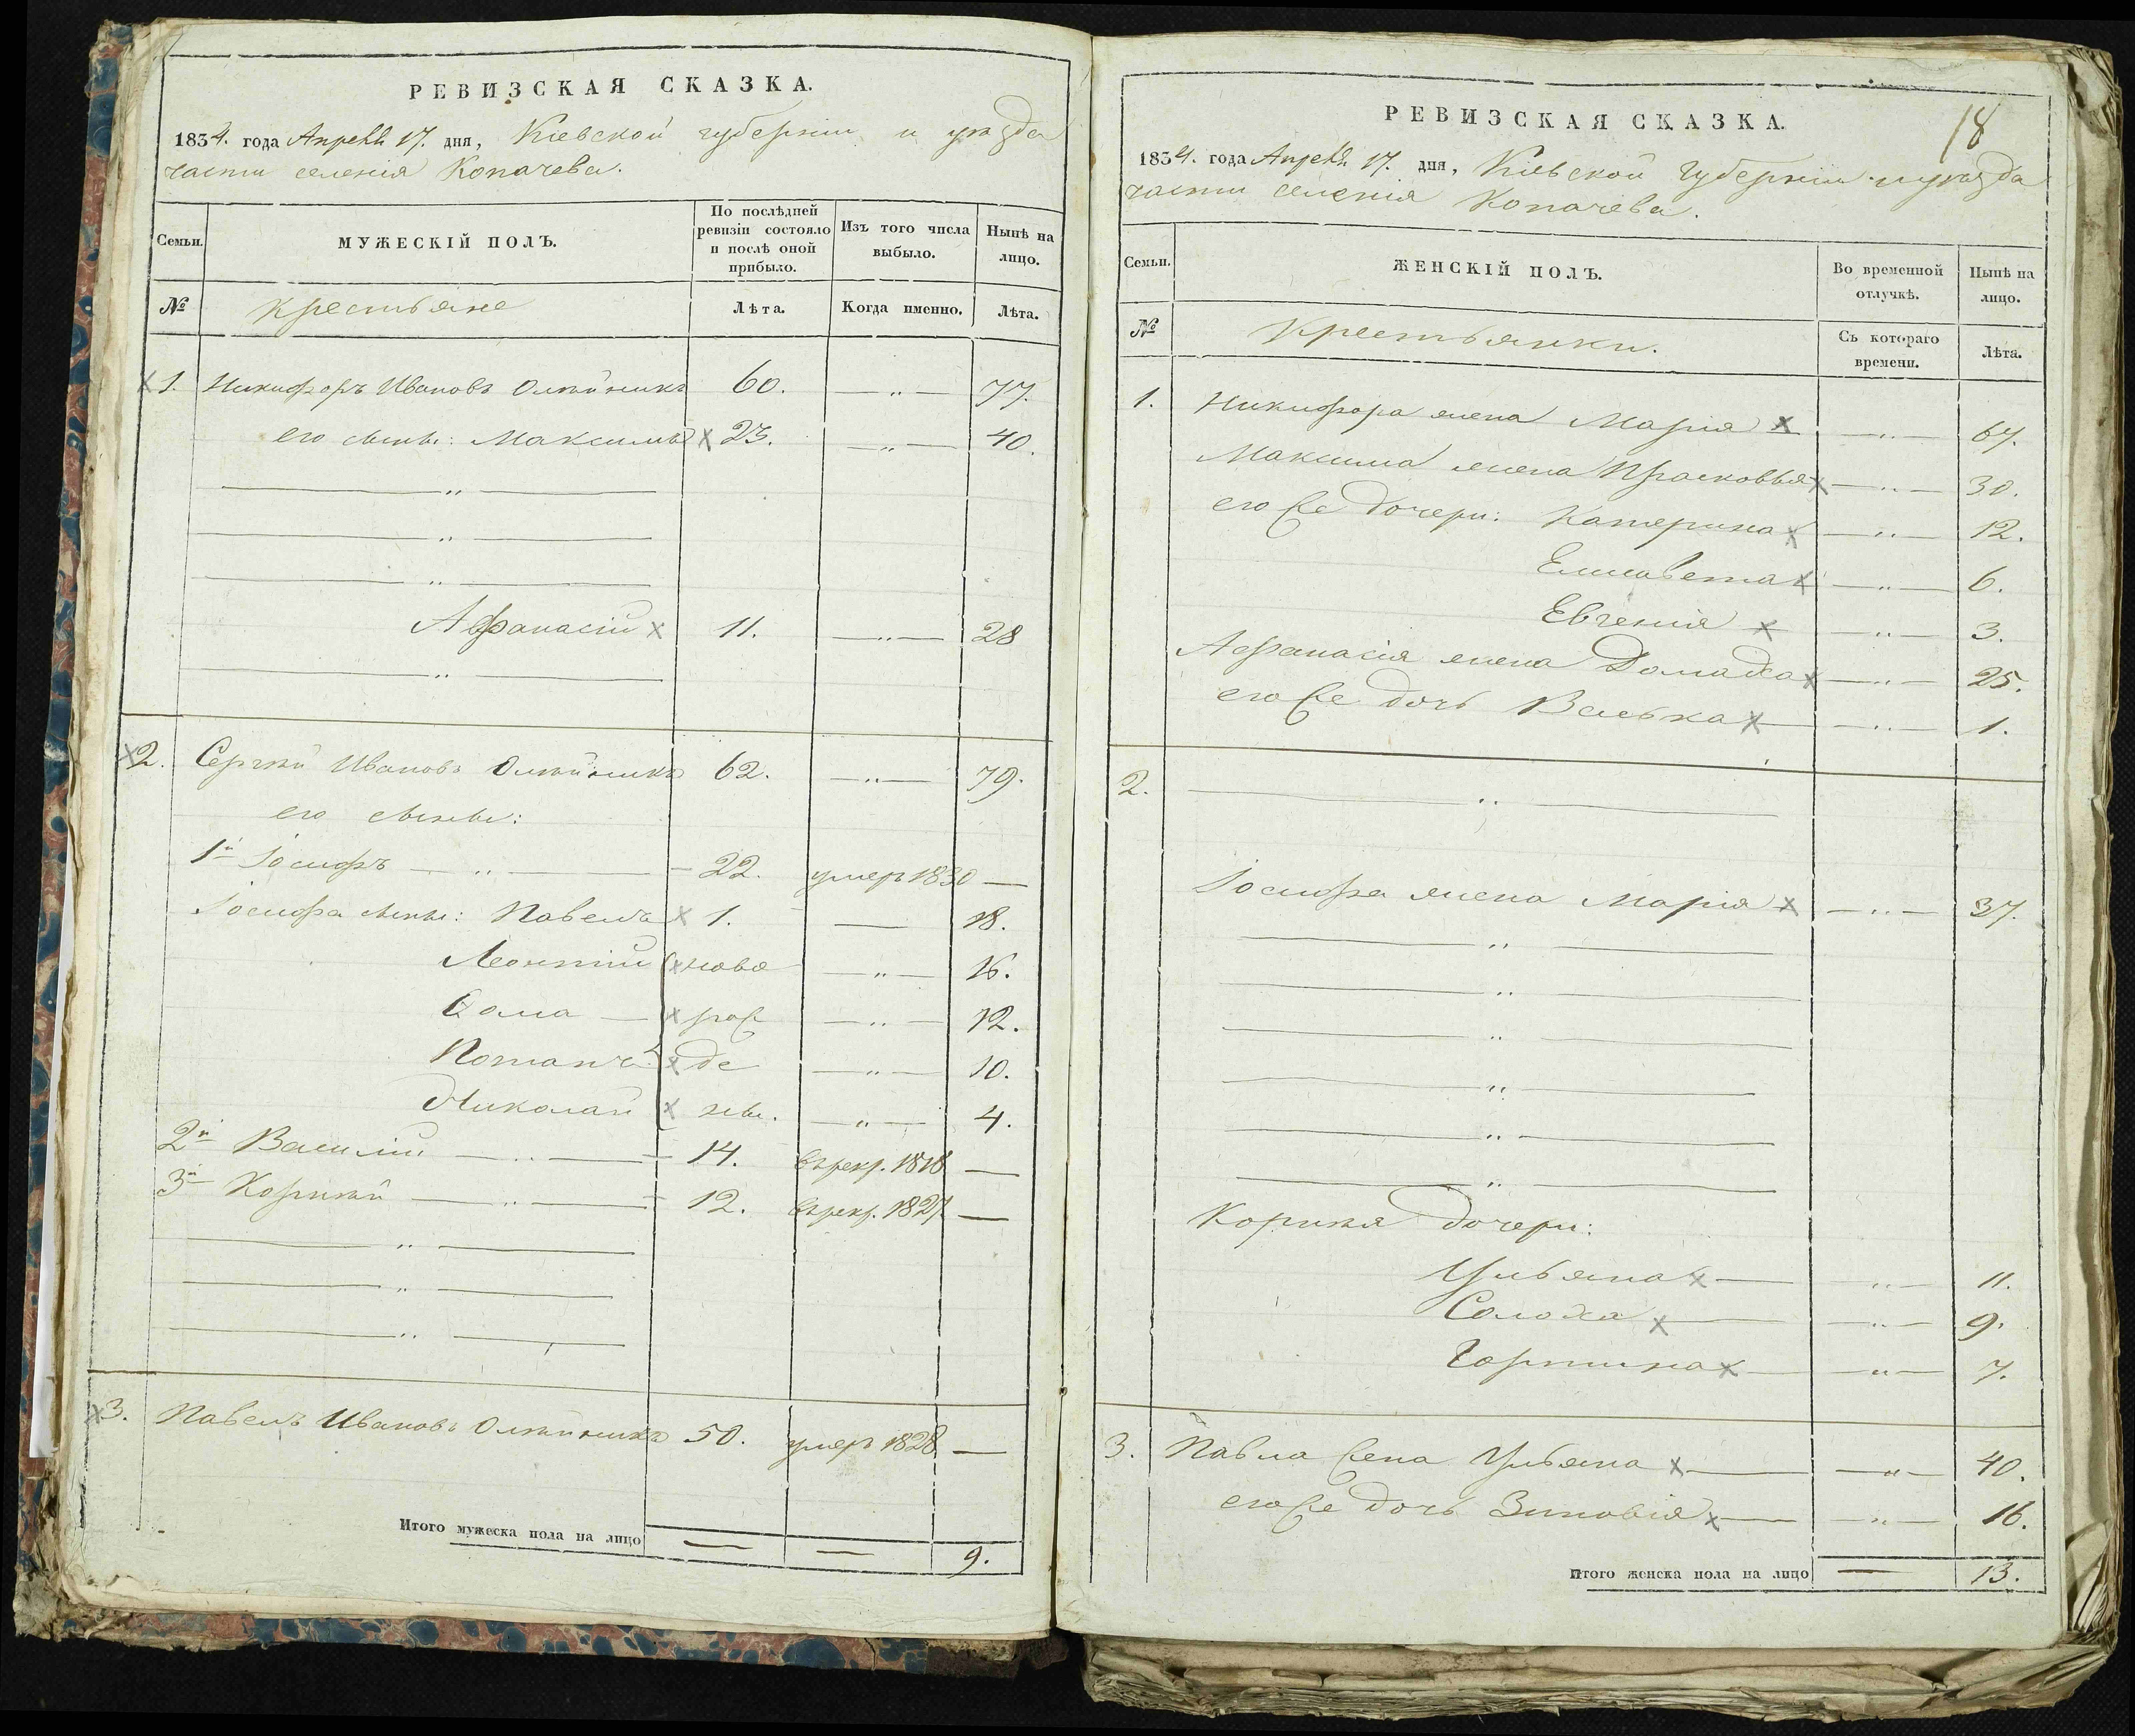 РЕВИЗСКАЯ СКАЗКА.
1834. года Апреля 17. дня, Кіевской губерніи и уѣзда
части селенія Копачева.
Семьи.
МУЖЕСКІЙ ПОЛЪ.
По послѣдней ревизіи состояло и послѣ оной прибыло.
Изъ того числа выбыло.
Нынѣ на лицо.
№ Крестьяне Лѣта. Когда именно. Лѣта.
1. Никифоръ Ивановъ Олѣйникъ 60. — „ — 77.
его сыны: Максимъ 23. — „ — 40.
— „ —
— „ —
— „ —
Афанасій 11. — „ — 28
— „ —
2. Сергѣй Ивановъ Олѣйникъ 62. — „ — 79.
его сыны:
1й Іосифъ — „ — 22. умеръ 1830 —
Іосифа сыны: Павелъ 1. — 18.
Леонтій ново — „ — 16.
Ѳома — рож — „ — 12.
Потапъ де — „ — 10.
Николай ны. — „ — 4.
2й Василій — „ — 14. въ рекр. 1818 —
3й Корнѣй — „ — 12. въ рекр. 1827. —
— „ —
— „ —
— „ —
3. Павелъ Ивановъ Олѣйникъ 50. умеръ 1828 —
Итого мужеска пола на лицо — — 9.
18
РЕВИЗСКАЯ СКАЗКА.
1834. года Апреля 17. дня, Кіевской Губерніи и уѣзда
части селенія Копачева.
Семьи.
ЖЕНСКІЙ ПОЛЪ.
Во временной отлучкѣ.
Нынѣ на лицо.
№ Крестьянки. Съ котораго времени. Лѣта.
1. Никифора жена Марія — „ — 67.
Максима жена Прасковья — „ — 30.
его же дочери: Катерина — „ — 12.
Елисавета — „ — 6.
Евгенія — „ — 3.
Афанасія жена Домаха — „ — 25.
его же дочь Васька — „ — 1.
2. — „ —
Іосифа жена Марія — „ — 37.
— „ —
— „ —
— „ —
— „ —
— „ —
— „ —
Корнѣя дочери:
Ульяна — „ — 11.
Солоха — „ — 9.
Горпина — „ — 7.
3. Павла жена Ульяна — „ — 40.
его же дочь Зиновія — „ — 16.
Итого женска пола на лицо — 13.